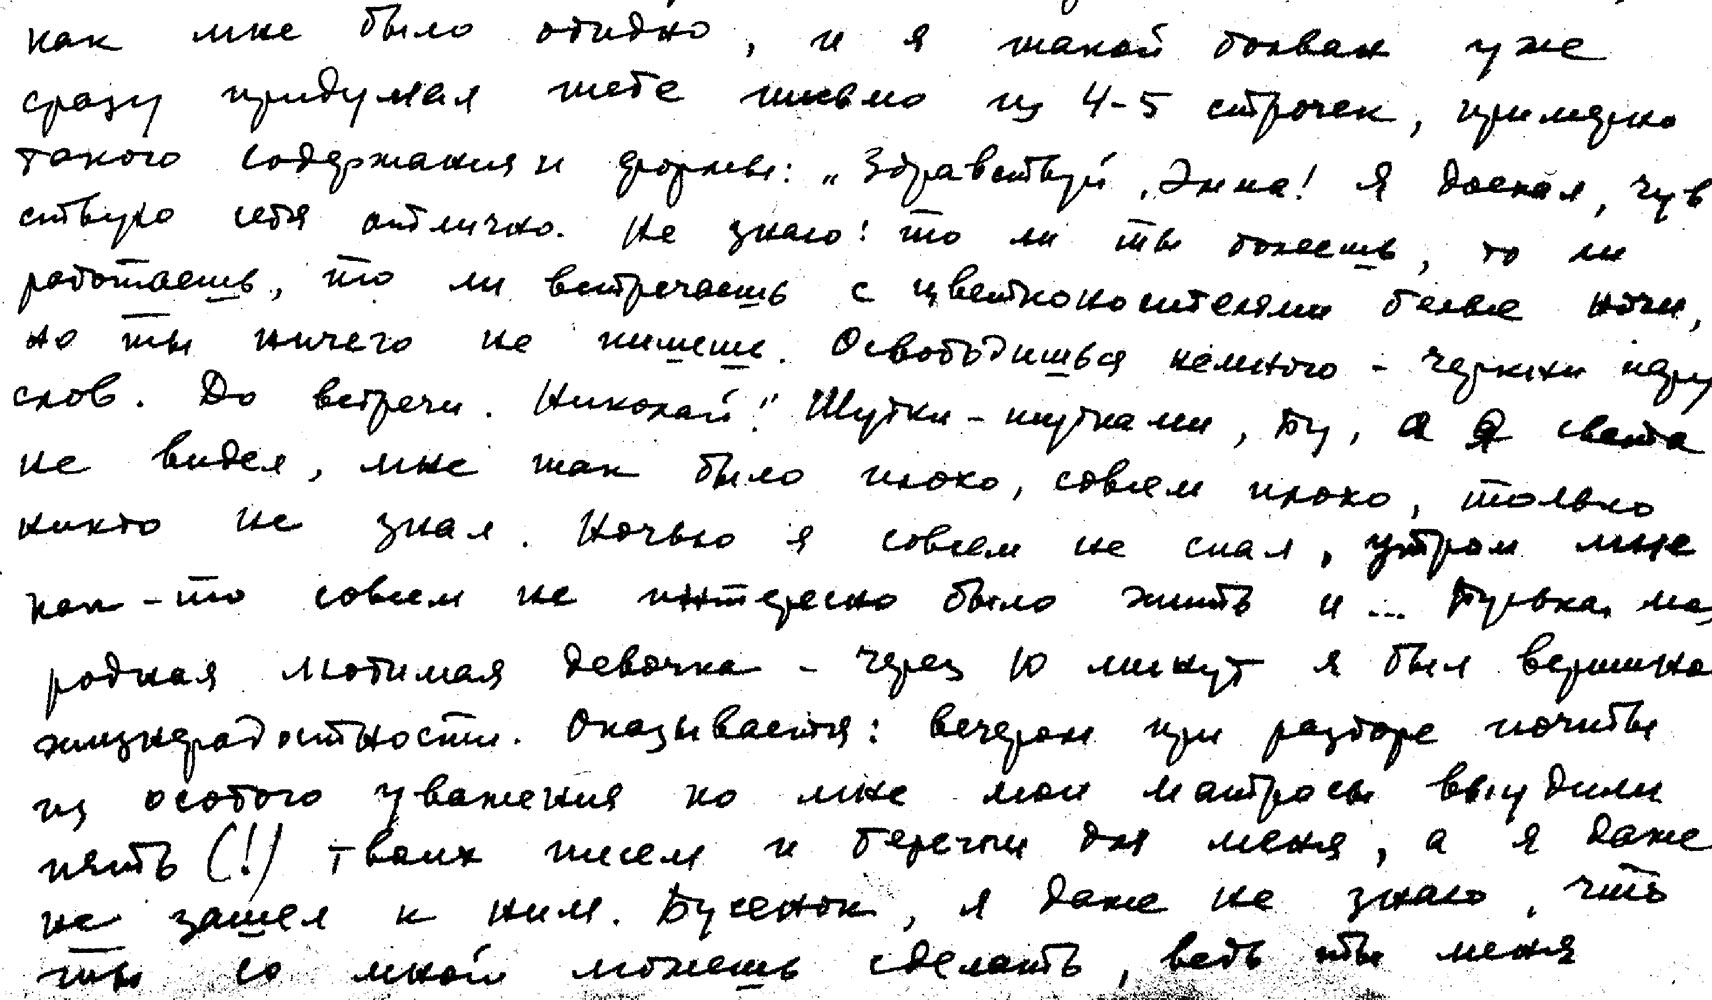 как мне было обидно, и я такой болван уже
сразу придумал тебе письмо из 4-5 строчек, примерно
такого содержания и формы: „Здравствуй, Энна! Я доехал, чув
ствую себя отлично. Не знаю: то ли ты болеешь, то ли
работаешь, то ли встречаешь с цветконосителями белые ночи,
но ты ничего не пишешь. Освободишься немного - черкни пару
слов. До встречи. Николай!" Шутки-шутками, Бу, а я света
не видел, мне так было плохо, совсем плохо, только
никто не знал. Ночью я совсем не спал, утром мне
как-то совсем не интересно было жить и... Булька, моя
родная любимая девочка - через 10 минут я был вершина
жизнерадостности. Оказывается: вечером при разборе почты
из особого уважения ко мне мои матросы выудили
пять (!) твоих писем и берегли для меня, а я даже
не зашел к ним. Бусенок, я даже не знаю, что
ты со мной можешь сделать, ведь ты меня